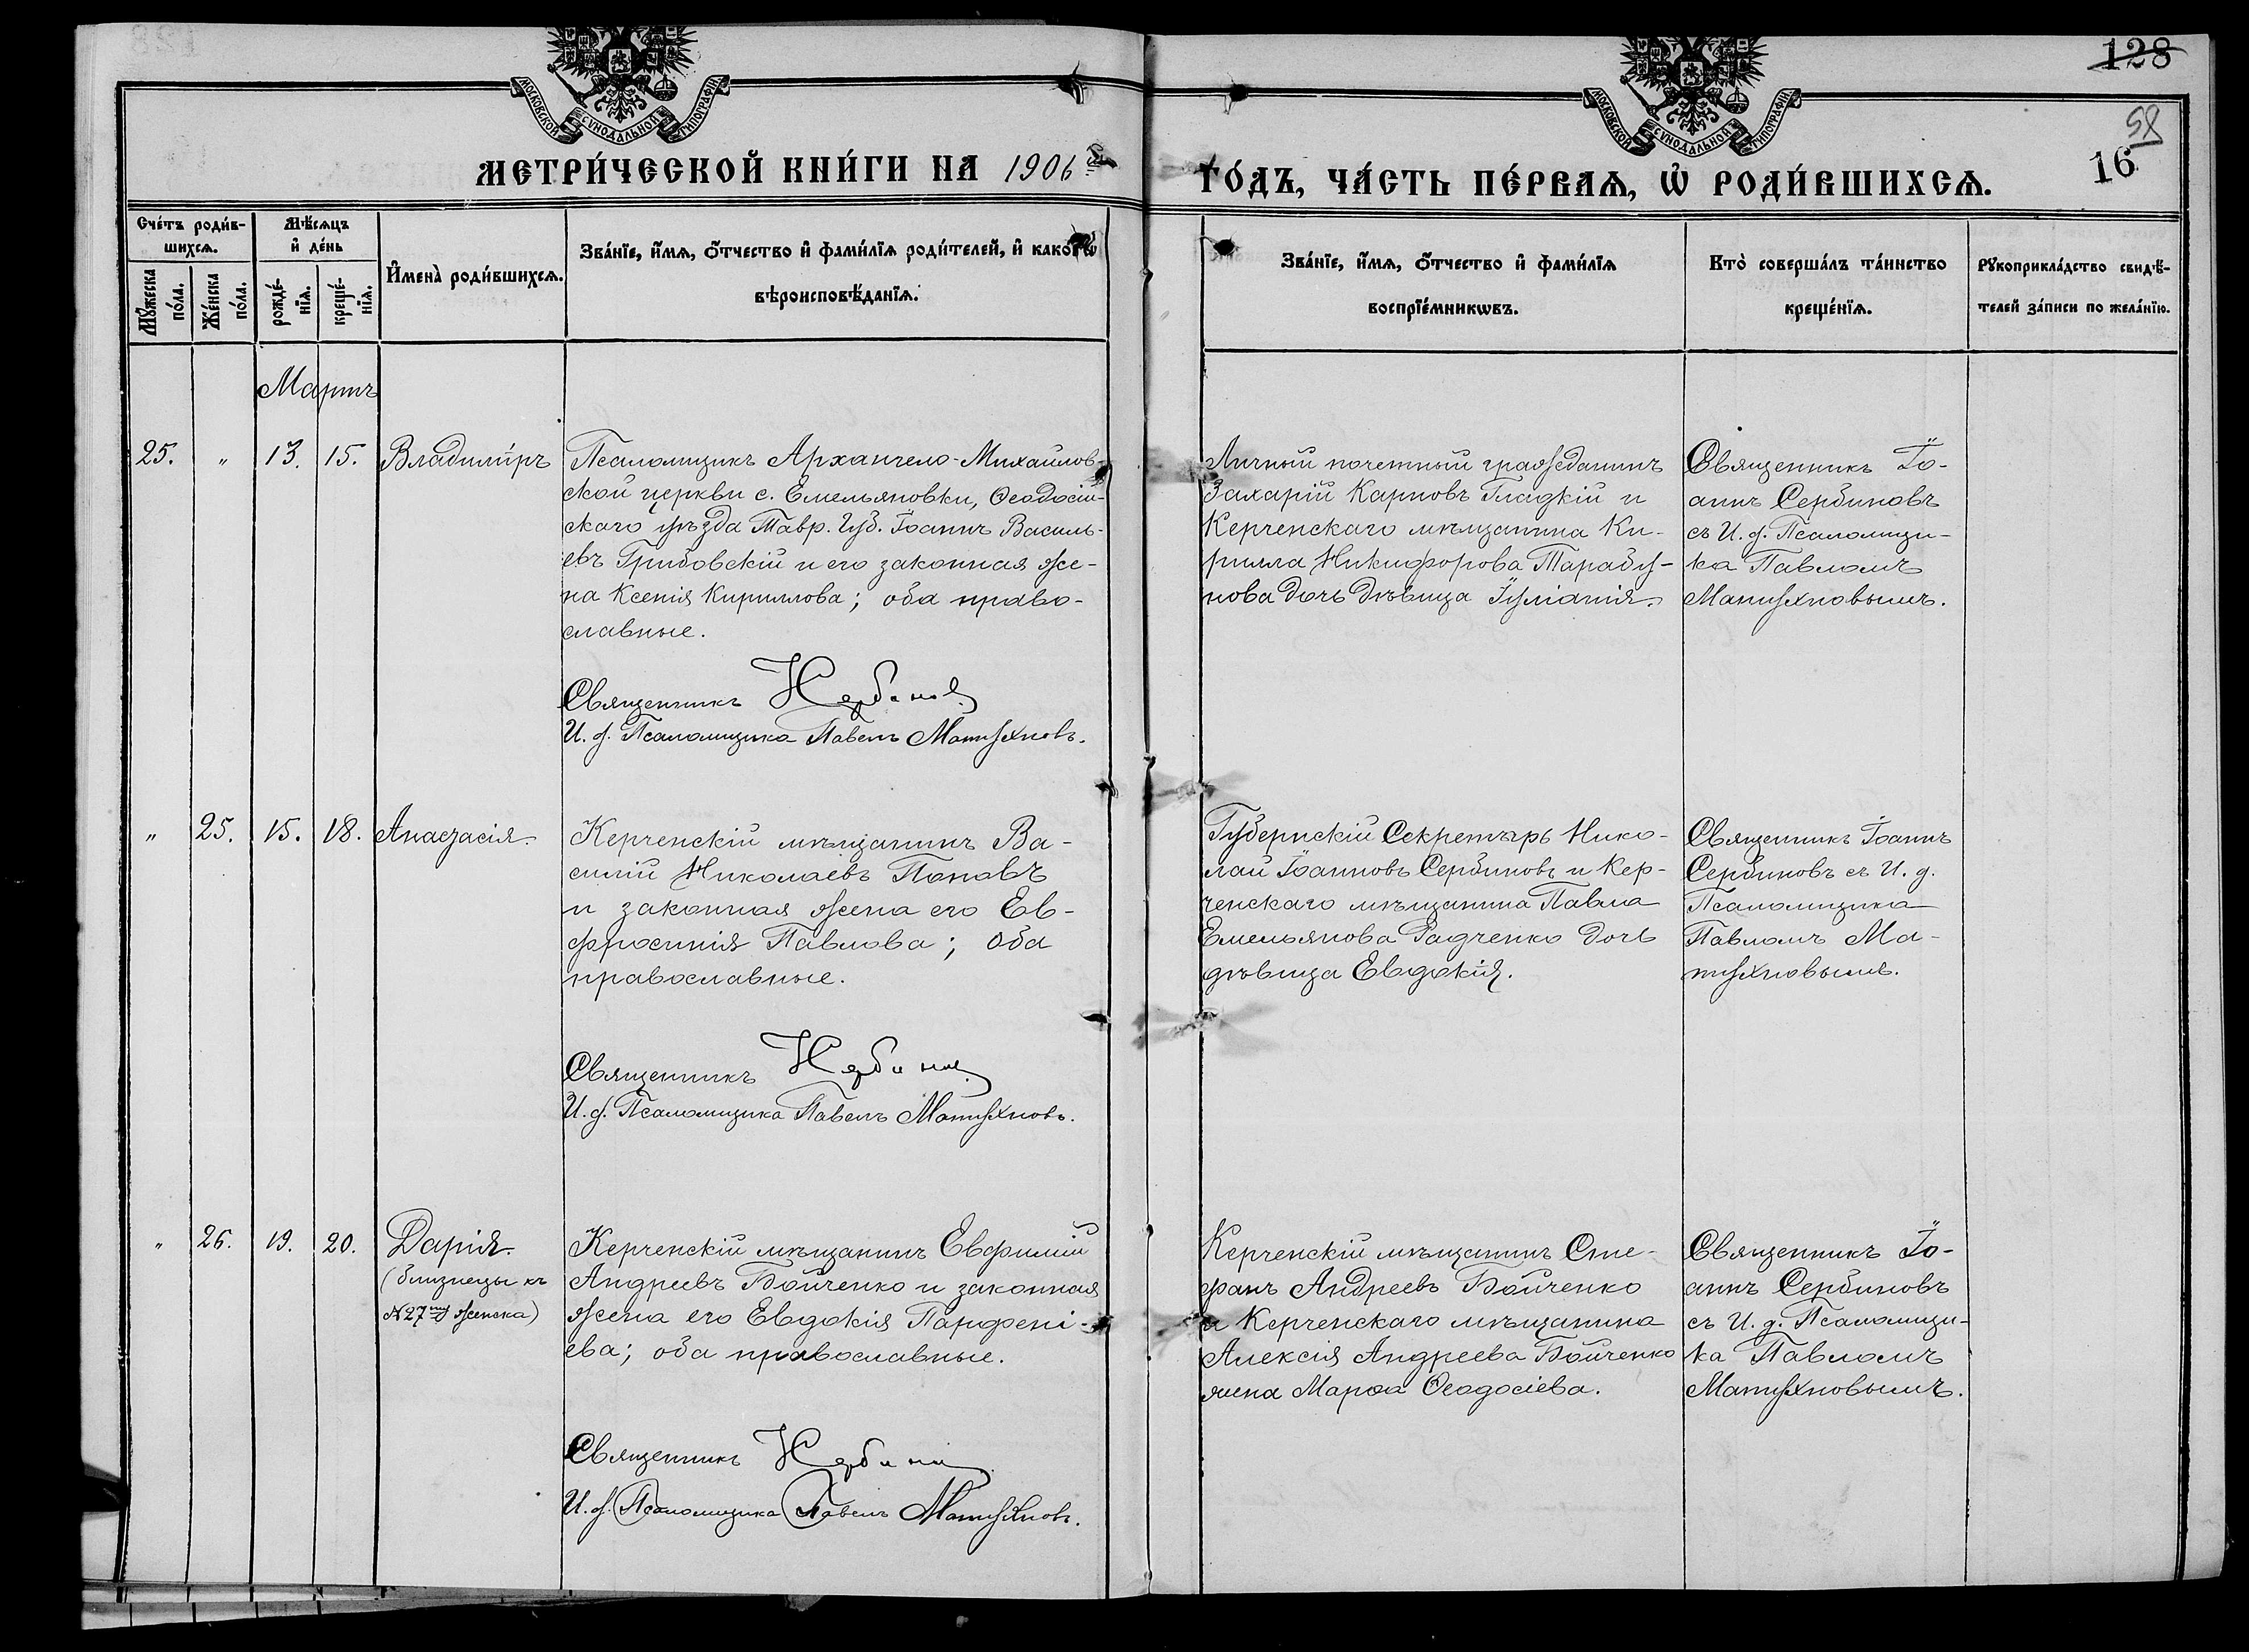 128
58
16
МОСКОВСКОЙ СѴНОДАЛЬНОЙ ТИПОГРАФІИ
МОСКОВСКОЙ СѴНОДАЛЬНОЙ ТИПОГРАФІИ
МЕТРИ́ЧЕСКОЙ КНИ́ГИ НА 1906 й
ГО́ДЪ, ЧА́СТЬ ПЕ́РВАѦ, Ѡ҆ РОДИ́ВШИХСѦ.
Сче́тъ роди́в-
шихсѧ.
Мѣ́сѧцъ
и҆ де́нь
Мꙋ́жеска
по́ла.
Же́нска
по́ла.
рожде́-
нїѧ.
креще́-
нїѧ.
И҆мена̀ роди́вшихсѧ.
Зва́нїе, и҆́мѧ, ѻ҆́тчество и҆ фами́лїѧ роди́телей, и҆ како́гѡ
вѣроисповѣ́данїѧ.
Зва́нїе, и҆́мѧ, ѻ҆́тчество и҆ фами́лїѧ
воспрїе́мникѡвъ.
Кто̀ соверша́лъ та́инство
креще́нїѧ.
Рꙋкоприкла́дство свидѣ́-
телей за́писи по жела́нїю.
Мартъ
25. " 13. 15. Владиміръ
Псаломщикъ Архангело-Михайлов-
ской церкви с. Емельяновки, Ѳеодосій-
скаго уѣзда Тавр. Губ. Іоаннъ Василь-
евъ Грибовскій и его законная же-
на Ксенія Кириллова; оба право-
славные.
Священникъ Н Сербинов
И. д. Псаломщика Павелъ Матухновъ.
Личный почетный гражданинъ
Захарій Карповъ Гладкій и
Керченскаго мѣщанина Ки-
рилла Никифорова Тарабу-
нова дочь дѣвица Іуліанія.
Священникъ Іо-
аннъ Сербиновъ
съ И. д. Псаломщи-
ка Павломъ
Матухновымъ.
" 25. 15. 18. Анастасія.
Керченскій мѣщанинъ Ва-
силій Николаевъ Поповъ
и законная жена его Ев-
фросинія Павлова; оба
православные.
Священникъ Н Сербинов
И. д. Псаломщика Павелъ Матухновъ.
Губернскій Секретарь Нико-
лай Іоанновъ Сербиновъ и Кер-
ченскаго мѣщанина Павла
Емельянова Радченко дочь
дѣвица Евдокія.
Священникъ Іоаннъ
Сербиновъ съ И. д.
Псаломщика
Павломъ Ма-
тухновымъ.
" 26. 19. 20. Дарія.
(близнецы къ
№27му женска)
Керченскій мѣщанинъ Евфимій
Андреевъ Бойченко и законная
жена его Евдокія Парфені-
ева; оба православные.
Священникъ Н Сербинов
И. д. Псаломщика Павелъ Матухновъ.
Керченскій мѣщанинъ Сте-
фанъ Андреевъ Бойченко
и Керченскаго мѣщанина
Алексія Андреева Бойченко
жена Марѳа Ѳеодосіева.
Священникъ Іо-
аннъ Сербиновъ
съ И. д. Псаломщи-
ка Павломъ
Матухновымъ.